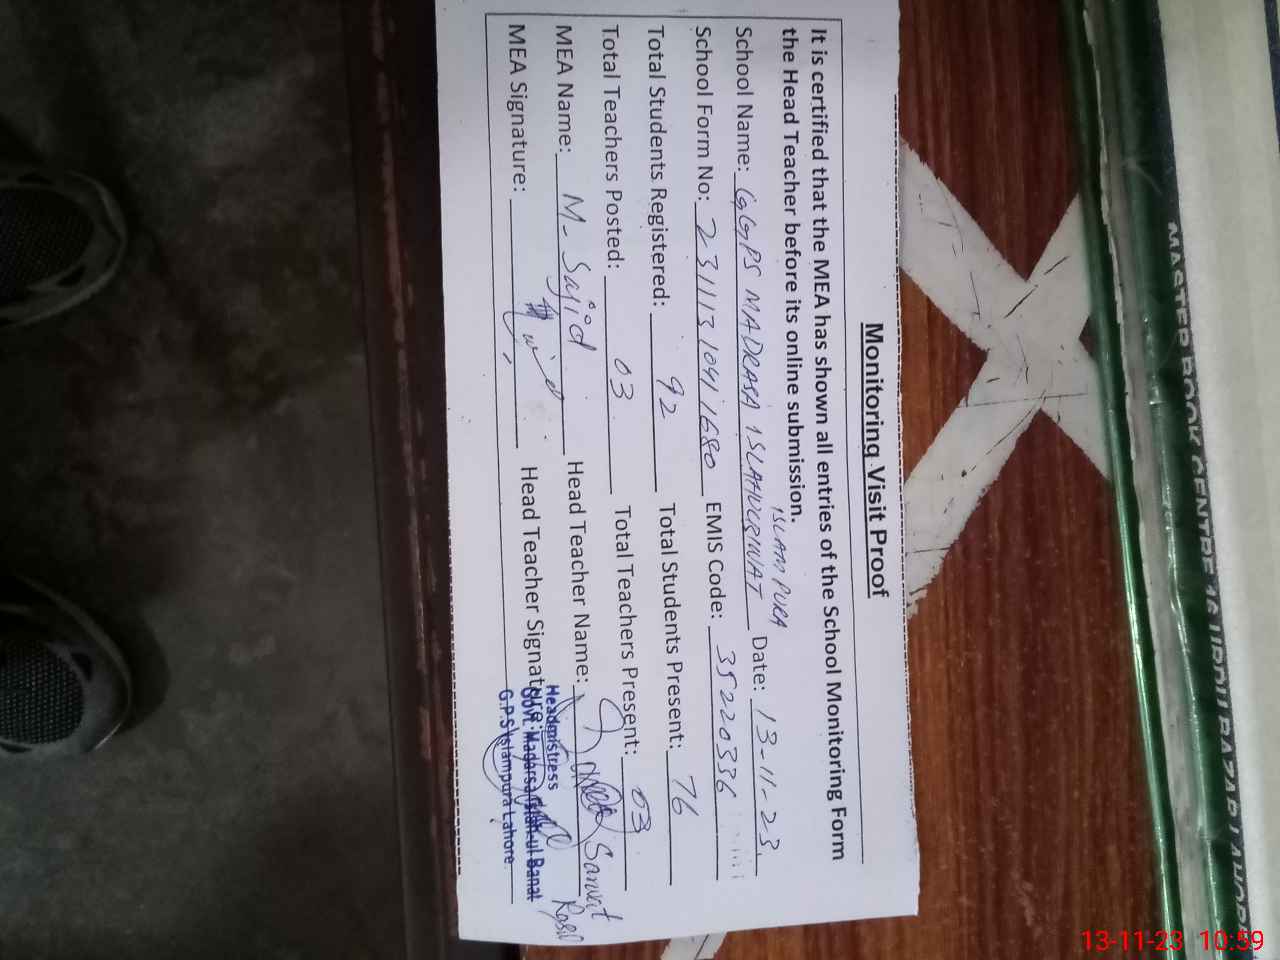 Monitoring Visit Proof
It is certified that the MEA has shown all entries of the School Monitoring Form
the Head Teacher before its online submission.
ISLAM PURA
School Name: GGPS MADRASA Date: 13-11-23
School Form No: EMIS Code: 35220336
Total Students Registered: 92 Total Students Present: 76
Total Teachers Posted: 03 Total Teachers Present: 03
MEA Name: M- Sajid Head Teacher Name:
MEA Signature: Head Teacher Signature:
Headmistress
Govt. Madarsa Islah-ul Banat
G.P.S Islampura Lahore.
MASTER BOOK CENTRE 16 URDU BAZAR LAHORE
13-11-23 10:59